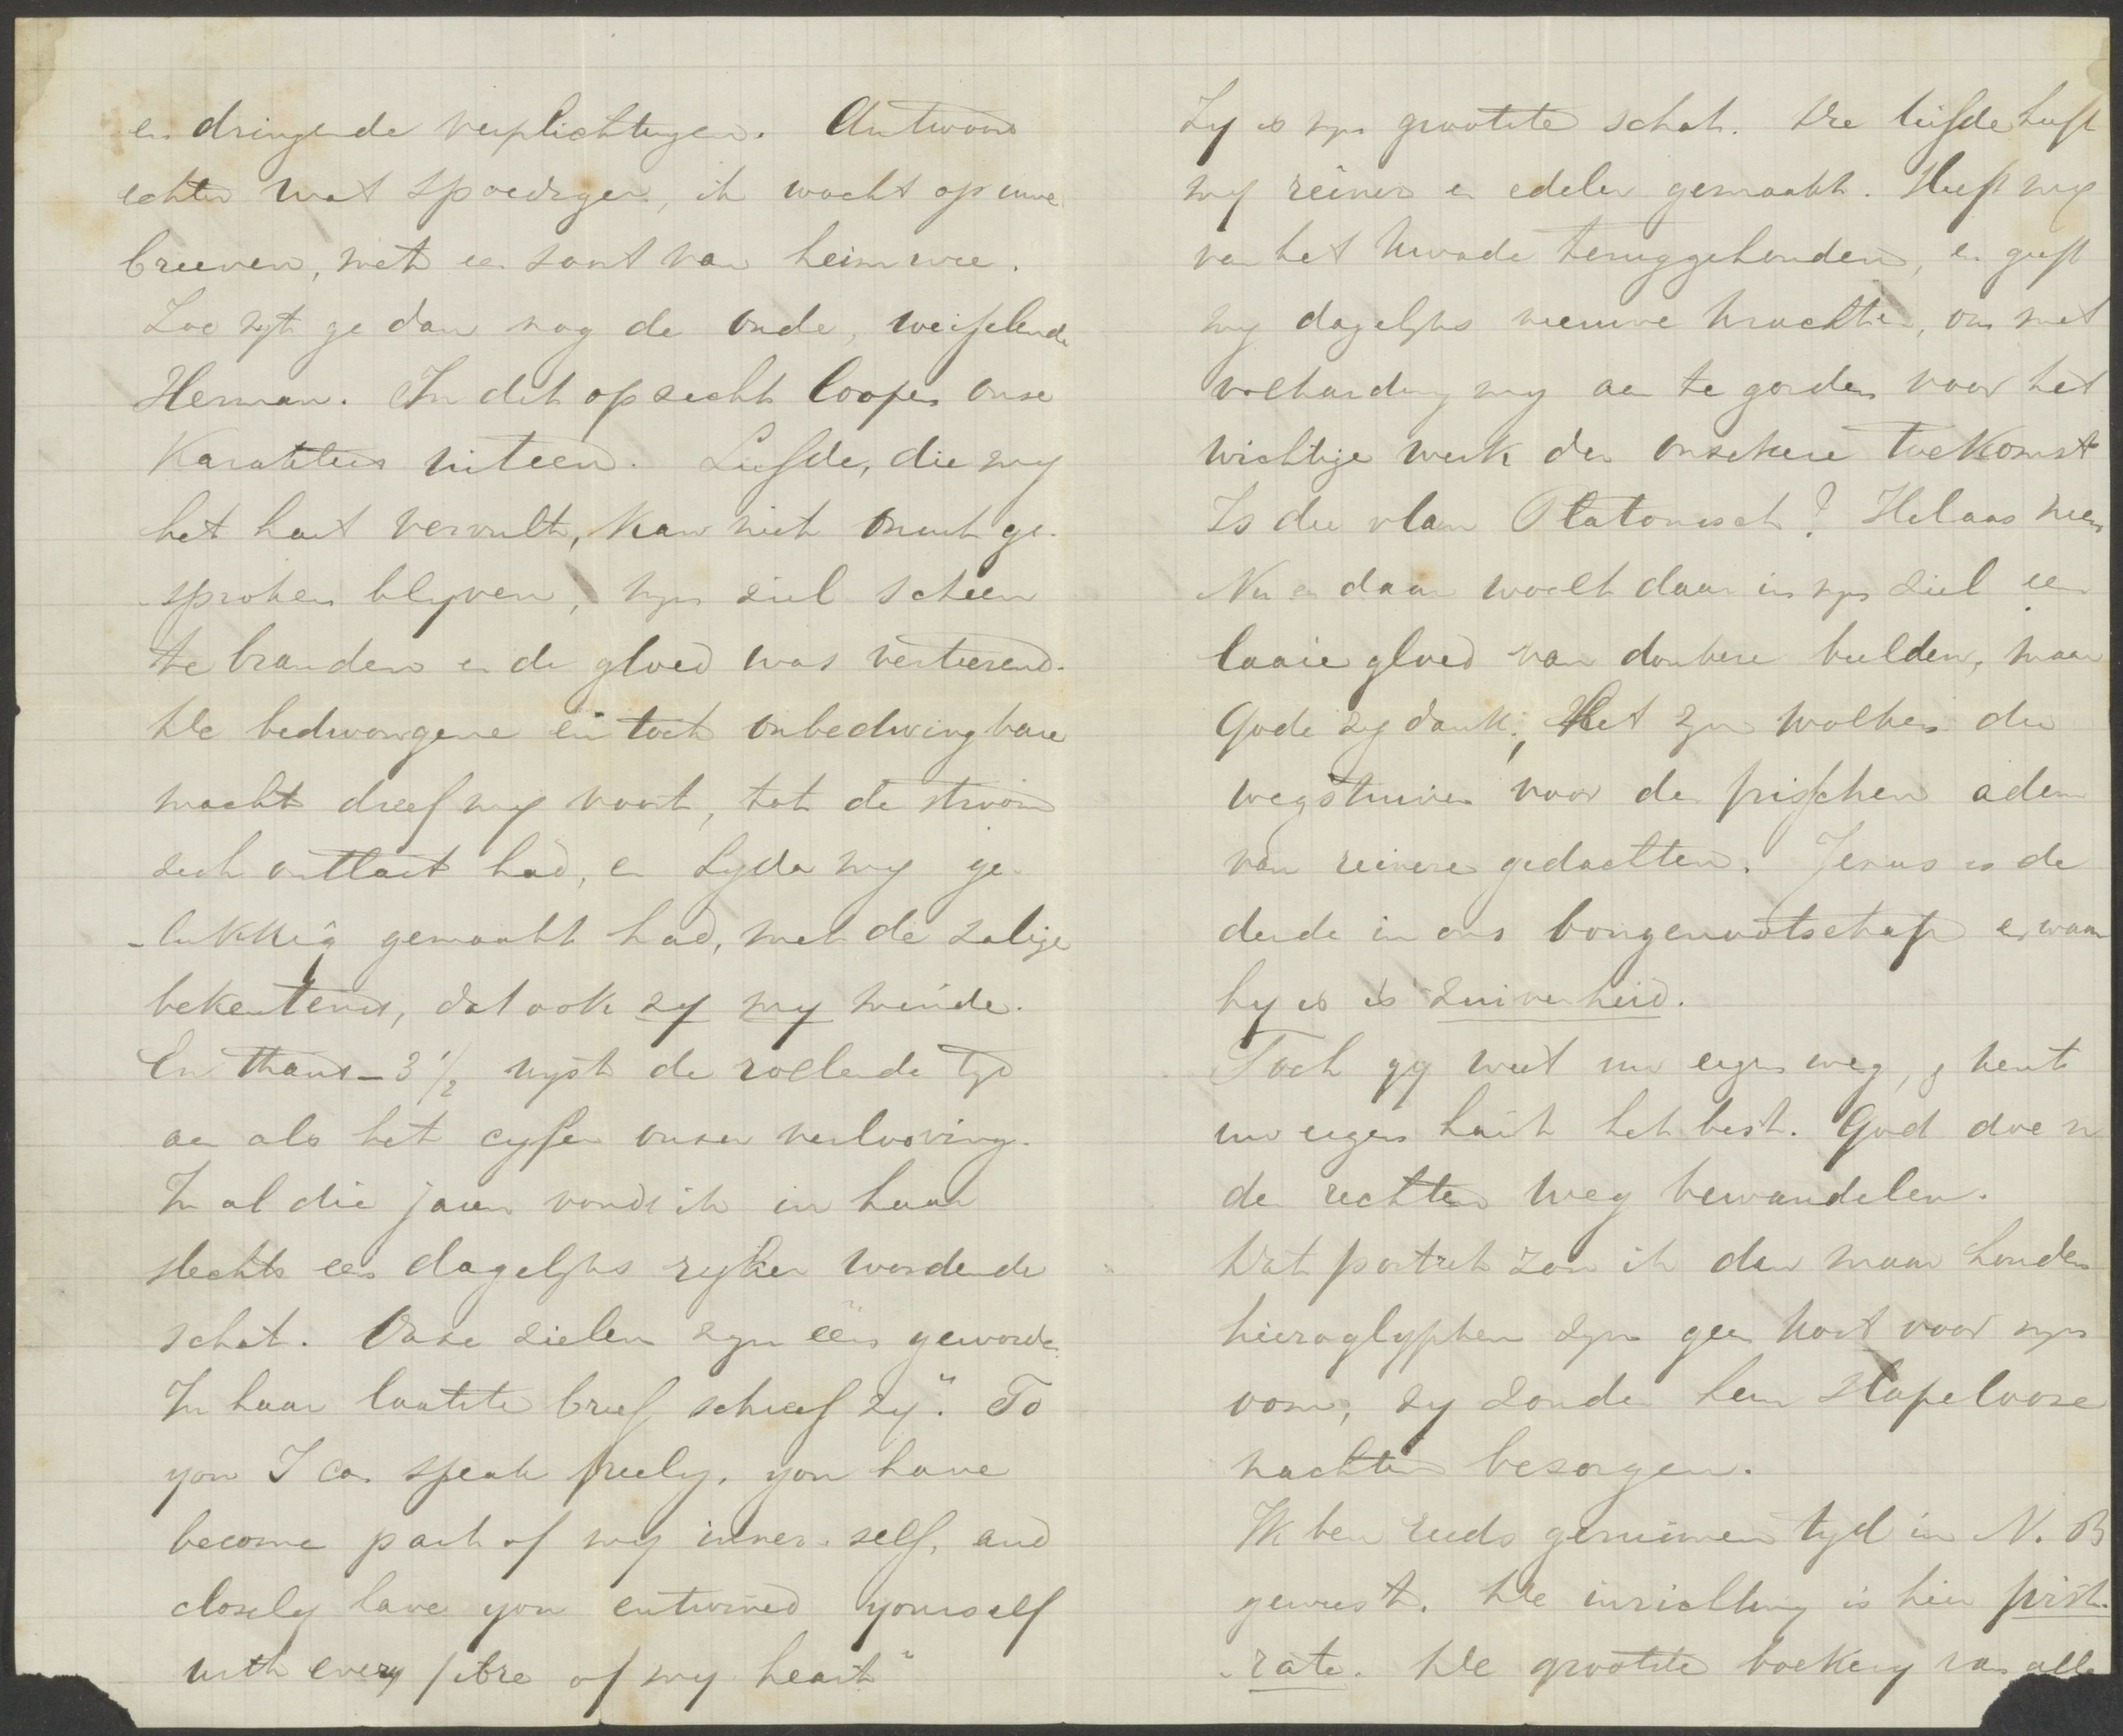 en dringende verplichtingen. Antwoord
echter wat spoediger, ik wacht op uwe
brieven, met een soort van heimwee.
Zoo zyt ge dan nog de oude, weifelende
Herman. In dit opzicht loopen onze
Karakters uiteen. Liefde, die my
het hart vervult, kan niet onuitge-
sproken blyven, myn ziel scheen
te branden en de gloed was verteerend.
De bedwongene en toch onbedwingbare
macht dreef my voort, tot de stroom
zich ontlast had, en Lyda my ge-
-lukkig gemaakt had, met de zalige
bekentenis, dat ook zy my minde.
En thans - 3 1/2 wyst de rollende tyd
aan als het cyfer onzer verloving.
In al die jaren vond ik in haar
slechts een dagelyks ryker wordende
schat. Onze zielen zyn één geworden.
In haar laatste brief schreef zy". To
you I can speak freely, you have
become part of my inner. self, and
closely have you entwined yourself
with every fibre of my heart"
Zy is myn grootste schat. Die liefde heeft
my reiner en edeler gemaakt. Heeft my
van het kwade teruggehouden, en geeft
my dagelyks nieuwe krachten, om met
volharding my aan te gorden voor het
wichtige werk der onzekere toekomst
Is die vlam Platonisch? Helaas neen
Nu en daar woelt daar in myn ziel een
laaie gloed van donkere beelden, maar
Gode zy dank; Het zyn wolken die
wegstuiven voor den frisschen adem
van reinere gedachten. Jezus is de
derde in ons bongenootschap en waar
hy is is zuiverheid.
Toch gy weet uw eigen weg, g kent
uw eigen hart het best. God doe u
den rechten weg bewandelen.
Dat portret zou ik dan maar houden
hieroglyphen zyn geen kost voor myn
oom, zy zouden hem slapelooze
nachten bezorgen.
Ik ben reeds geruimen tyd in N. B
geweest. De inrichting is hier first-
-rate. De grootste boekery van alle